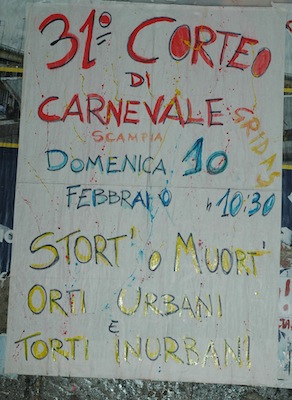 31° CORTEO
DI
CARNEVALE
GRIDAS
SCAMPIA
DOMENICA 10
FEBBRAIO h 10:30
STORT' o MUORT'
ORTI URBANI
E
TORTI INURBANI